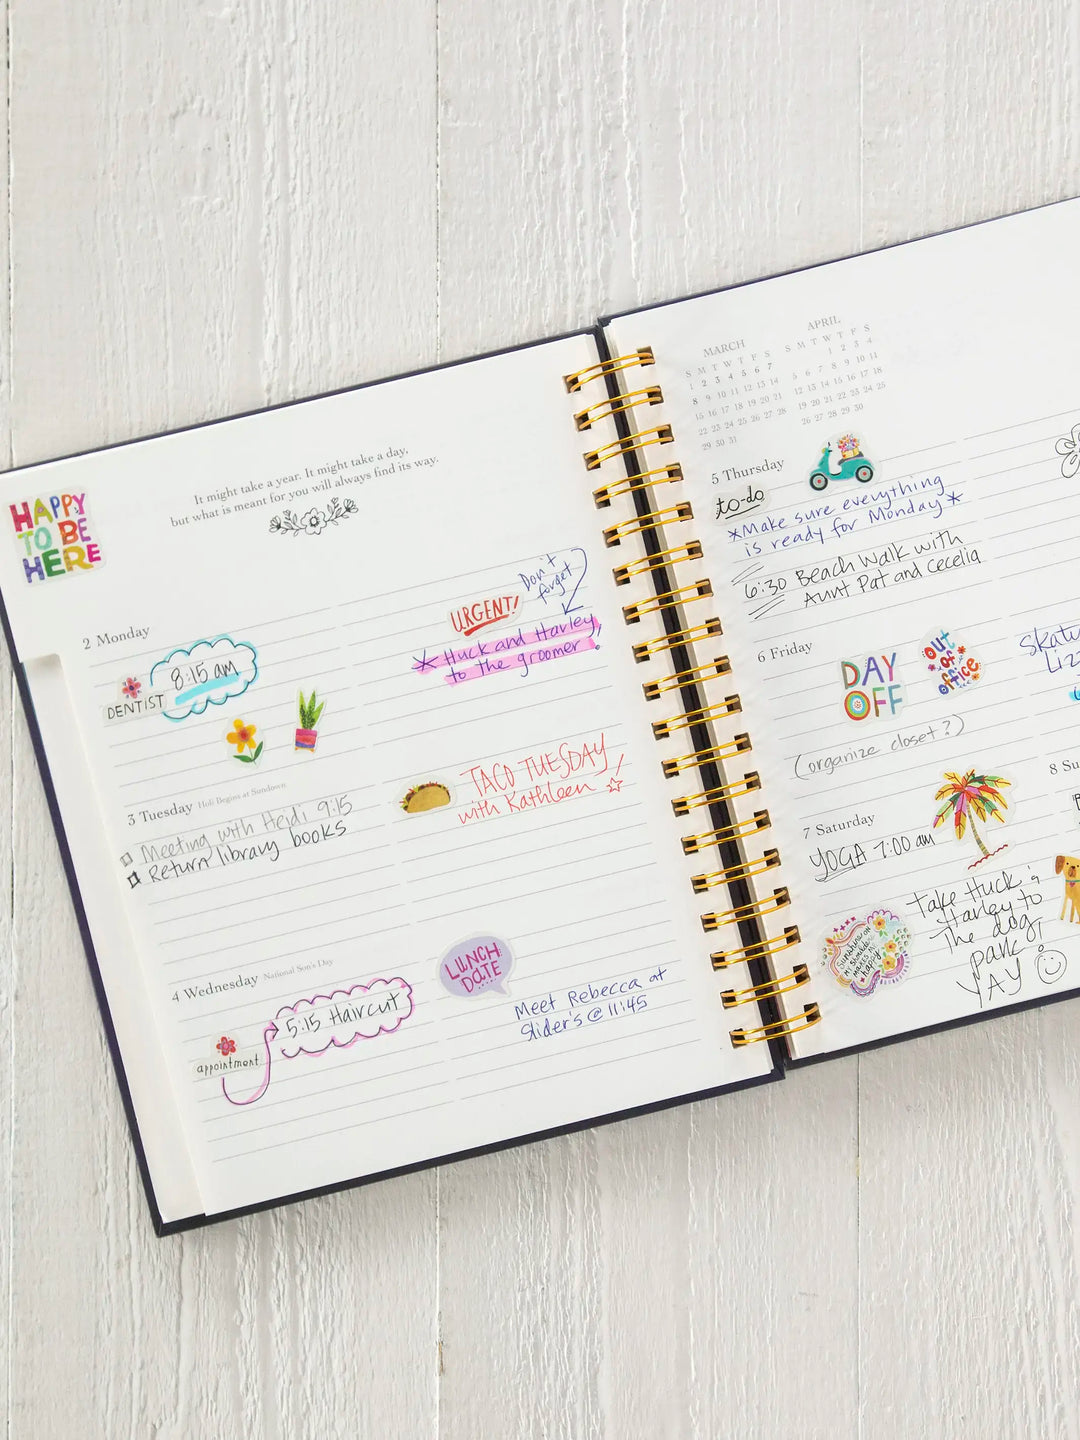 HAPPY
TO BE
HERE
It might take a year. It might take a day,
but what is meant for you will always find its way.
2 Monday
8:15 am
DENTIST
URGENT!
Don't
forget
* Huck and Harley,
to the groomer!
3 Tuesday Holi Begins at Sundown
Meeting with Heidi 9:15
Return library books
TACO TUESDAY
with Kathleen!
4 Wednesday National Son's Day
5:15 Haircut
appointment
LUNCH
DATE
Meet Rebecca at
Slider's @ 11:45
MARCH
S M T W T F S
1 2 3 4 5 6 7
8 9 10 11 12 13 14
15 16 17 18 19 20 21
22 23 24 25 26 27 28
29 30 31
APRIL
S M T W T F S
1 2 3 4
5 6 7 8 9 10 11
12 13 14 15 16 17 18
19 20 21 22 23 24 25
26 27 28 29 30
5 Thursday
to-do
*Make sure everything
is ready for Monday*
6:30 Beach Walk with
Aunt Pat and Cecelia
6 Friday
DAY
OFF
out
of
office
(organize closet?)
7 Saturday
YOGA 7:00 am
Sunshine on
my shoulders
makes me
happy
Take Huck &
Harley to
the dog
park!
YAY
8